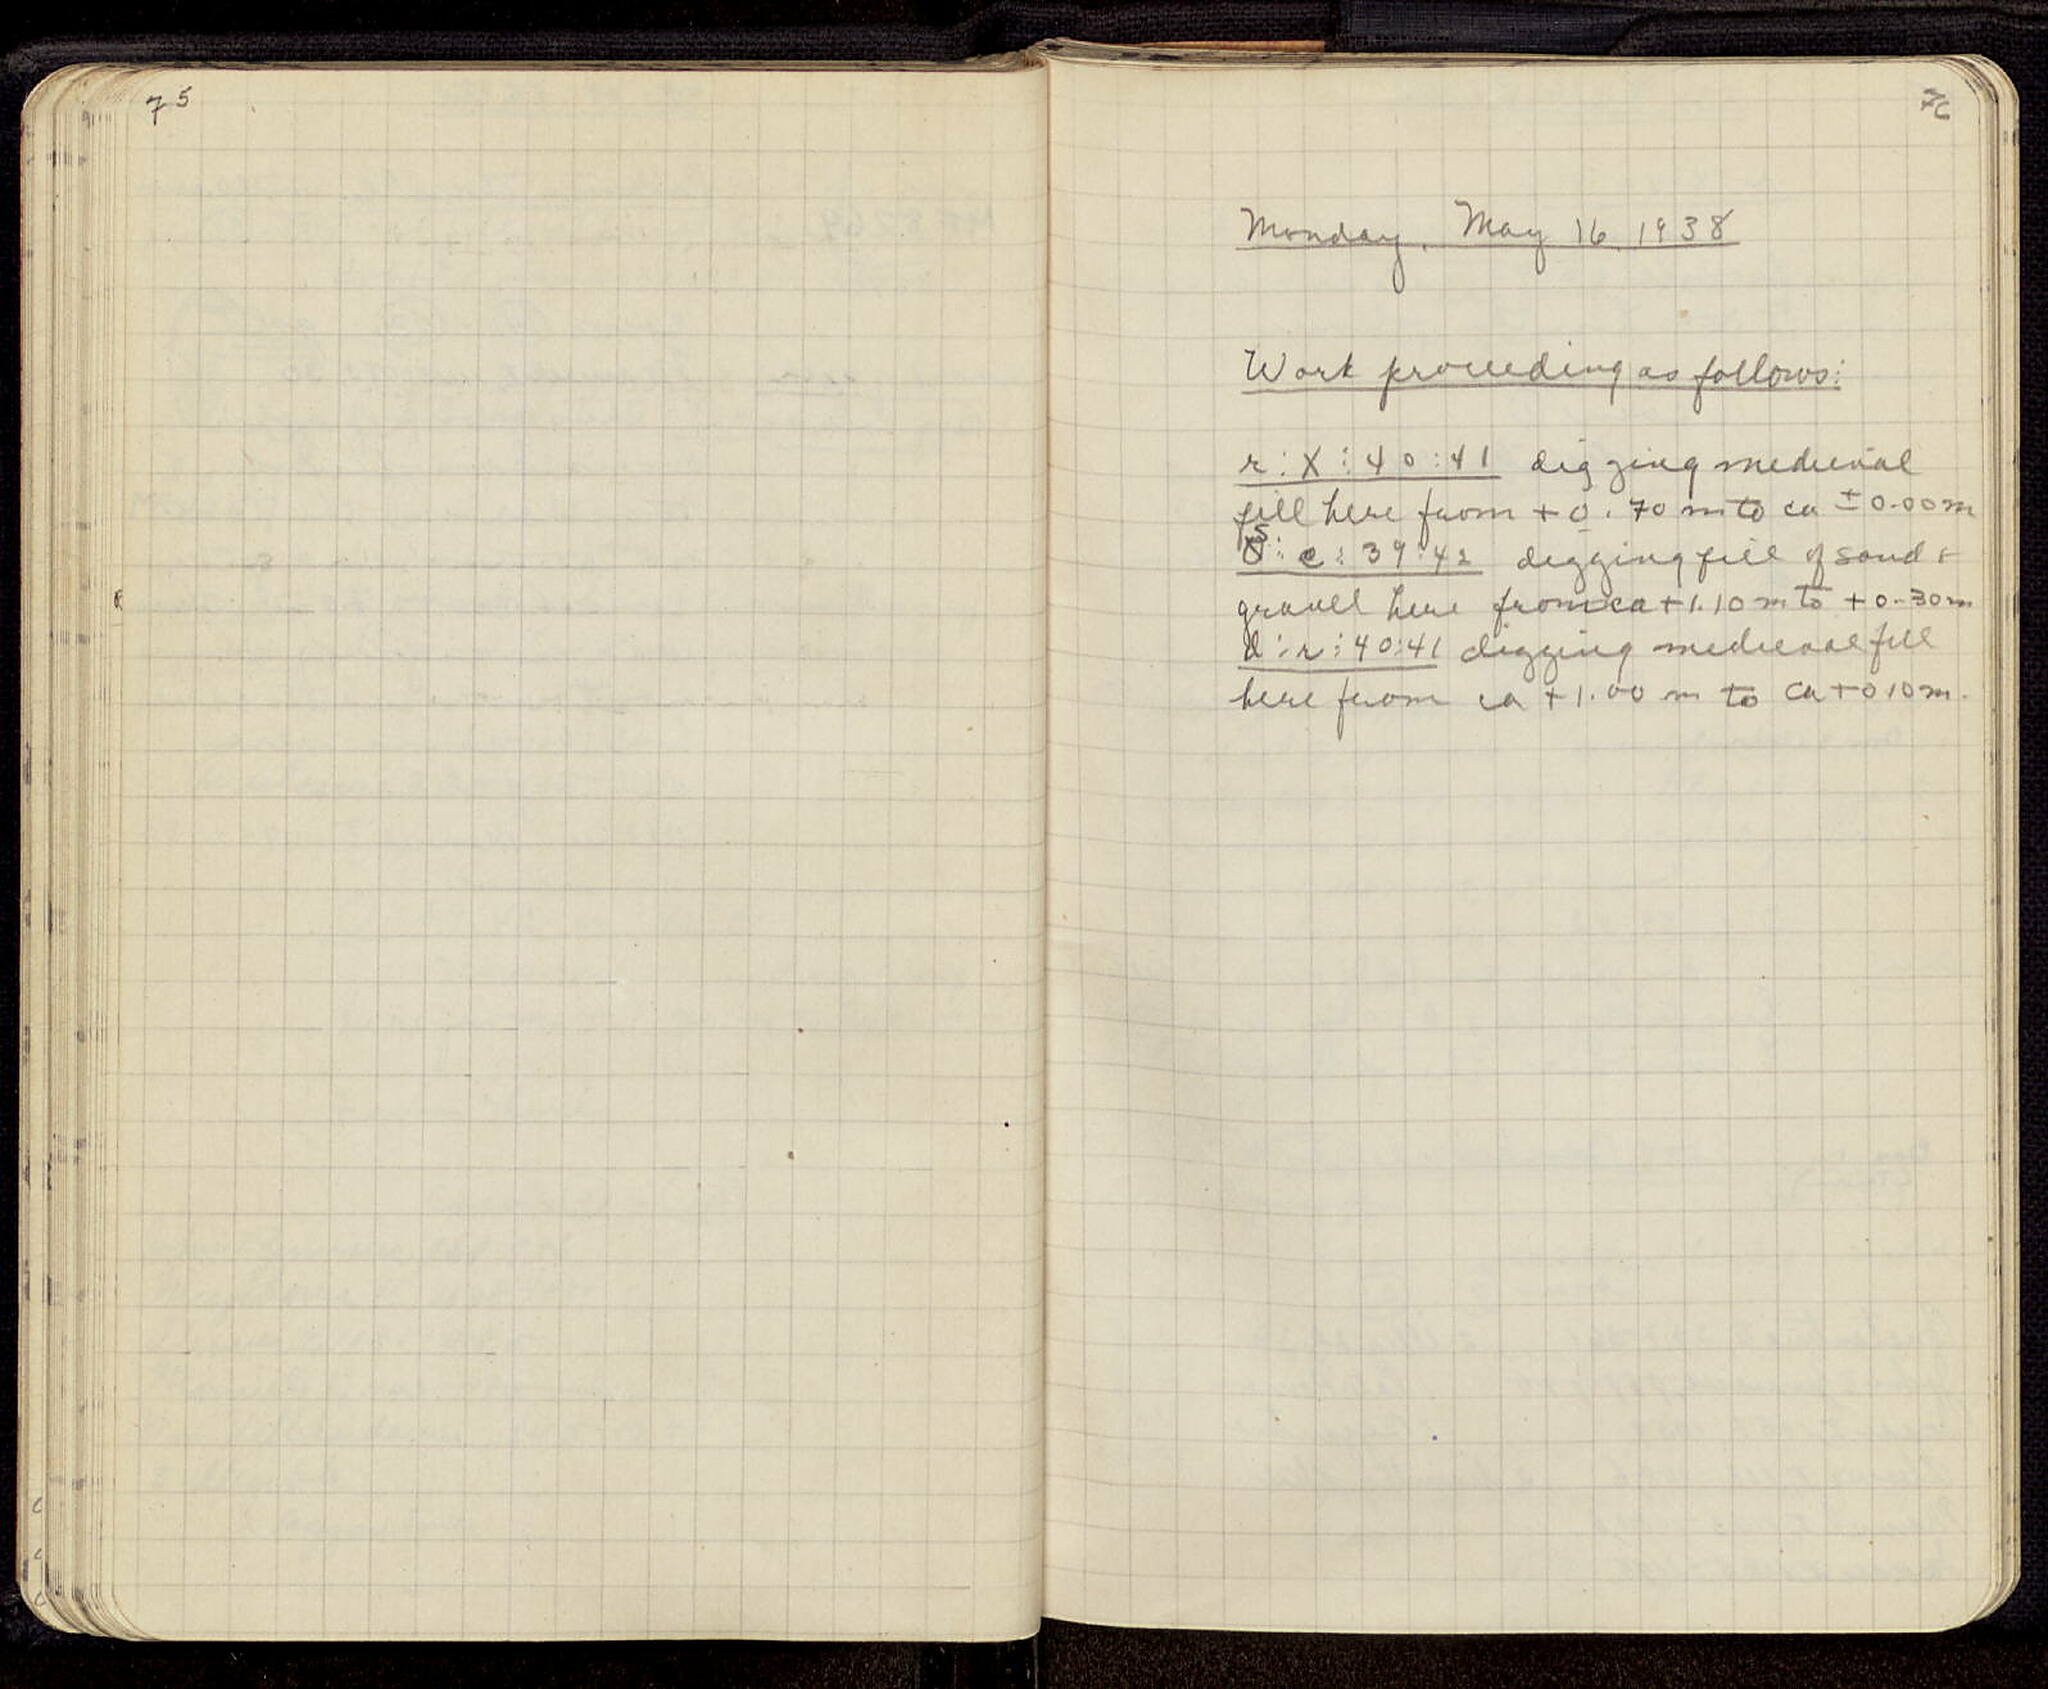 75
76
Monday, May 16, 1938
Work proceeding as follows:
r:X:40:41 digging medieval
fill here from +0.70 m to ca ±0.00 m
e:39:42 digging fill of sand +
gravel here from ca +1.10 m to +0.30 m
d:r:40:41 digging medieval fill
here from ca +1.00 m to ca +0 10 m.